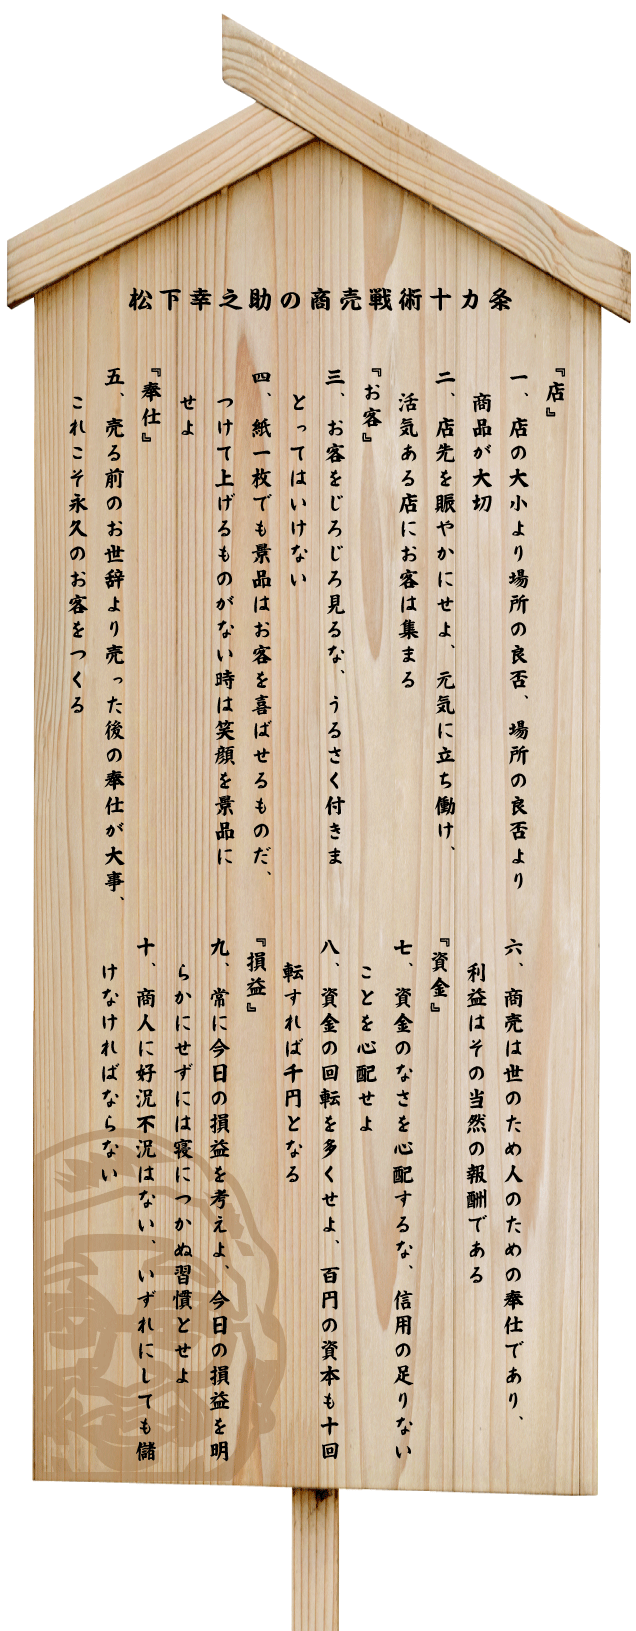 松下幸之助の商売戦術十カ条
『店』
一、店の大小より場所の良否、場所の良否より
商品が大切
二、店先を賑やかにせよ、元気に立ち働け、
活気ある店にお客は集まる
『お客』
三、お客をじろじろ見るな、うるさく付きま
とってはいけない
四、紙一枚でも景品はお客を喜ばせるものだ、
つけて上げるものがない時は笑顔を景品に
せよ
『奉仕』
五、売る前のお世辞より売った後の奉仕が大事、
これこそ永久のお客をつくる
六、商売は世のため人のための奉仕であり、
利益はその当然の報酬である
『資金』
七、資金のなさを心配するな、信用の足りない
ことを心配せよ
八、資金の回転を多くせよ、百円の資本も十回
転すれば千円となる
『損益』
九、常に今日の損益を考えよ、今日の損益を明
らかにせずには寝につかぬ習慣とせよ
十、商人に好況不況はない、いずれにしても儲
けなければならない